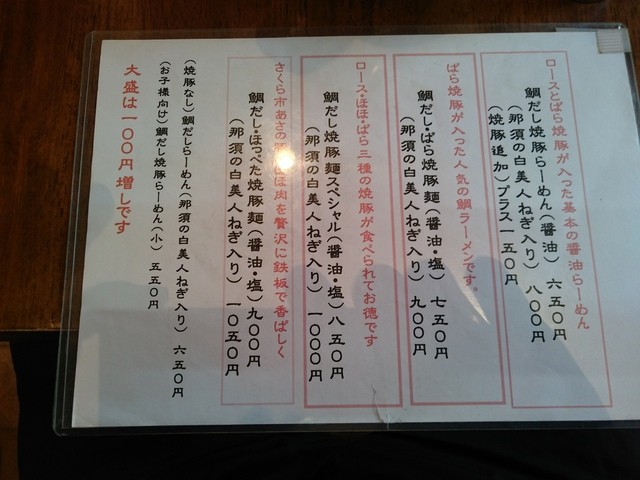 ロースとばら焼豚が入った基本の醤油らーめん
鯛だし焼豚らーめん（醤油） 六五〇円
（那須の白美人ねぎ入り） 八〇〇円
（焼豚追加）プラス一五〇円
ばら焼豚が入った人気の鯛ラーメンです。
鯛だし・ばら焼豚麺（醤油・塩） 七五〇円
（那須の白美人ねぎ入り） 九〇〇円
ロース・ほほ・ばら三種の焼豚が食べられてお徳です
鯛だし焼豚麺スペシャル（醤油・塩）八五〇円
（那須の白美人ねぎ入り） 一〇〇〇円
さくら市あさの ほほ肉を贅沢に鉄板で香ばしく
鯛だし・ほっぺた焼豚麺（醤油・塩）九〇〇円
（那須の白美人ねぎ入り） 一〇五〇円
（焼豚なし）鯛だしらーめん（那須の白美人ねぎ入り） 六五〇円
（お子様向け）鯛だし焼豚らーめん（小） 五五〇円
大盛は一〇〇円増しです